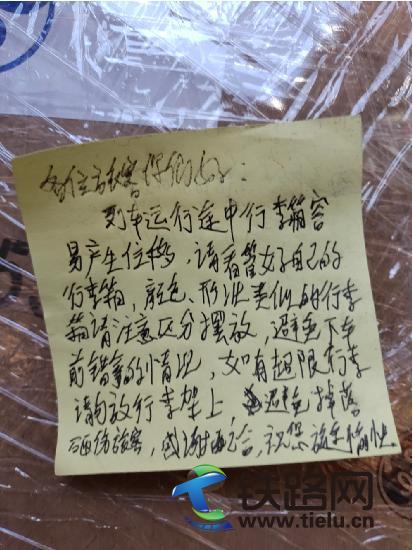 各位旅客你们好：
列车运行途中行李箱容
易产生位移，请看管好自己的
行李箱，颜色、形状类似的行李
箱请注意区分摆放，避免下车
前错拿的情况，如有超限行李
请勿放行李架上，避免掉落
砸伤旅客，感谢配合，祝您旅途愉快
铁路网
www.tielu.cn